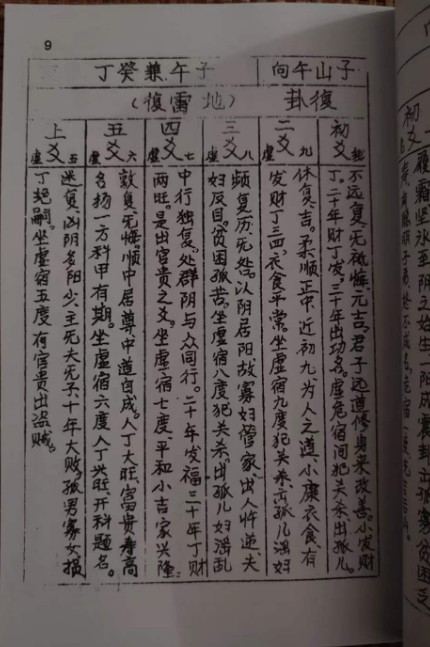 子山午向
子午兼癸丁
復卦
（地雷復）
初爻
不远复，无祗悔，元吉，君子远道修身来改善。小发财
丁。二十年财丁发。三十年出功名。虚危宿间犯关杀出孤儿。
二爻 虚九
休复，吉。柔顺正中，近初九为人之道，小康衣食，有
发财丁三四，衣食平常。坐虚宿九度犯关杀，出孤儿淫妇
三爻 虚八
频复厉，无咎。以阴居阳故寡妇管家，出人忤逆，夫
妇反目。贫困孤苦。坐虚宿八度犯关杀，出孤儿妇淫乱
四爻 虚七
中行独复，处群阴与众同行。二十年发福三十年丁财
两旺是出官贵之爻。坐虚宿七度，平和小吉家兴隆。
五爻 虚六
敦复，无悔，顺中居尊中道自成。人丁大旺，富贵寿高
名扬一方科甲有期。坐虚宿六度人丁兴旺，开科题名。
上爻 虚五
迷复，凶，阴多阳少，主死大无子，十年大败，孤男寡女损
丁绝嗣。坐虚宿五度有官贵出盗贼。
9
初爻
履霜坚氷至阴之始生